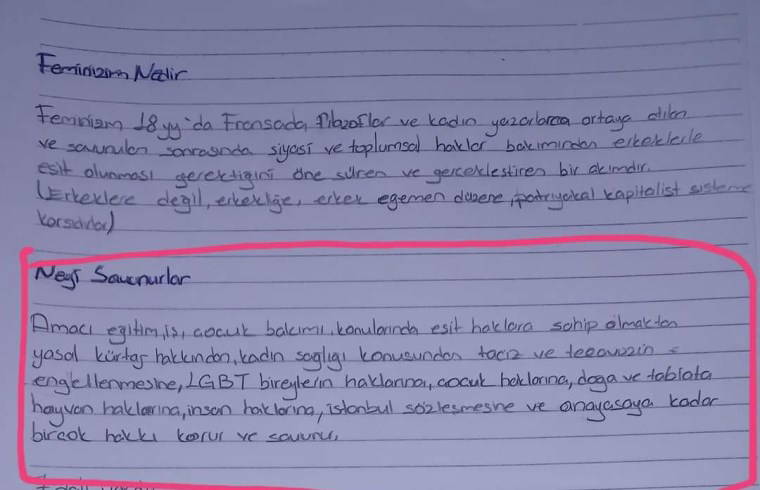 Feminizm Nedir
Feminizm 18 yy'da Fransada filozoflar ve kadın yazarlarca ortaya atılan
ve savunulan sonrasında siyasi ve toplumsal haklar bakımından erkeklerle
eşit olunması gerektiğini öne süren ve gerçekleştiren bir akımdır.
(Erkeklere değil, erkekliğe, erkek egemen düzene, patriyakal kapitalist sisteme
karşıdırlar)
Neyi Savunurlar
Amacı eğitim, iş, çocuk bakımı, konularında eşit haklara sahip olmaktan
yasal kürtaj hakkından, kadın sağlığı konusundan taciz ve tecavüzün
engellenmesine, LGBT bireylerin haklarına, çocuk haklarına, doğa ve tabiata
hayvan haklarına, insan haklarına, istanbul sözleşmesine ve anayasaya kadar
birçok hakkı korur ve savunur.